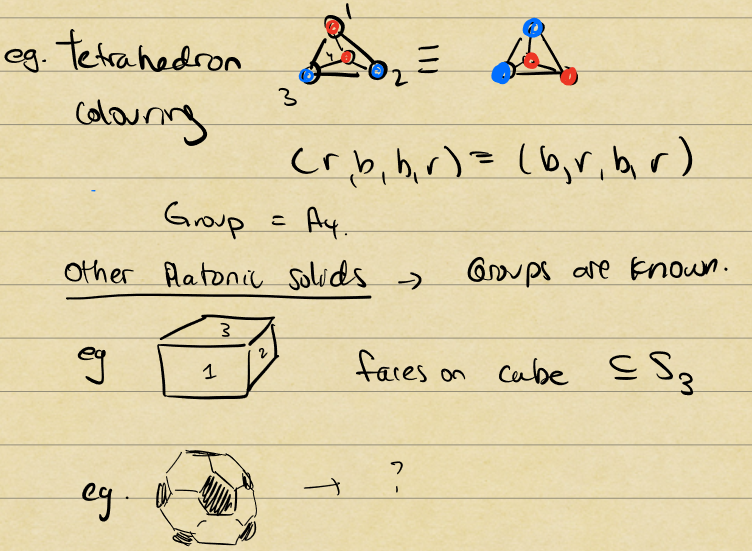 eg. Tetrahedron 1 4 3 2 ≡
colouring
(r,b,b,r) = (b,r,b,r)
Group = A4.
Other Platonic solids → Groups are known.
eg 1 2 3 faces on cube ⊆ S3
eg. → ?